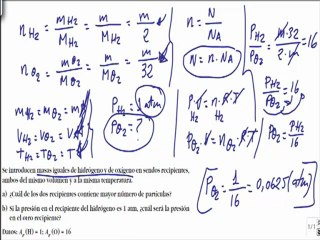 n H2 = m H2 / M H2 = m / M H2 = m / 2
n O2 = m O2 / M O2 = m / M O2 = m / 32
m H2 = m O2 = m
V H2 = V O2 = V
T H2 = T O2 = T
P H2 = 1 atm
P O2 = ?
n = N / NA
N = n · NA
P H2 · V = n H2 · R · T
P O2 · V = n O2 · R · T
P H2 / P O2 = m · 32 / 2 · m = 16
P H2 / P O2 = 16
P O2 = P H2 / 16
[P O2 = 1 / 16 = 0,0625 (atm)]
Se introducen masas iguales de hidrógeno y de oxígeno en sendos recipientes,
ambos del mismo volumen y a la misma temperatura.
a) ¿Cuál de los dos recipientes contiene mayor número de partículas?
b) Si la presión en el recipiente del hidrógeno es 1 atm, ¿cuál será la presión
en el otro recipiente?
Datos: Ar (H) = 1; Ar (O) = 16
1/1